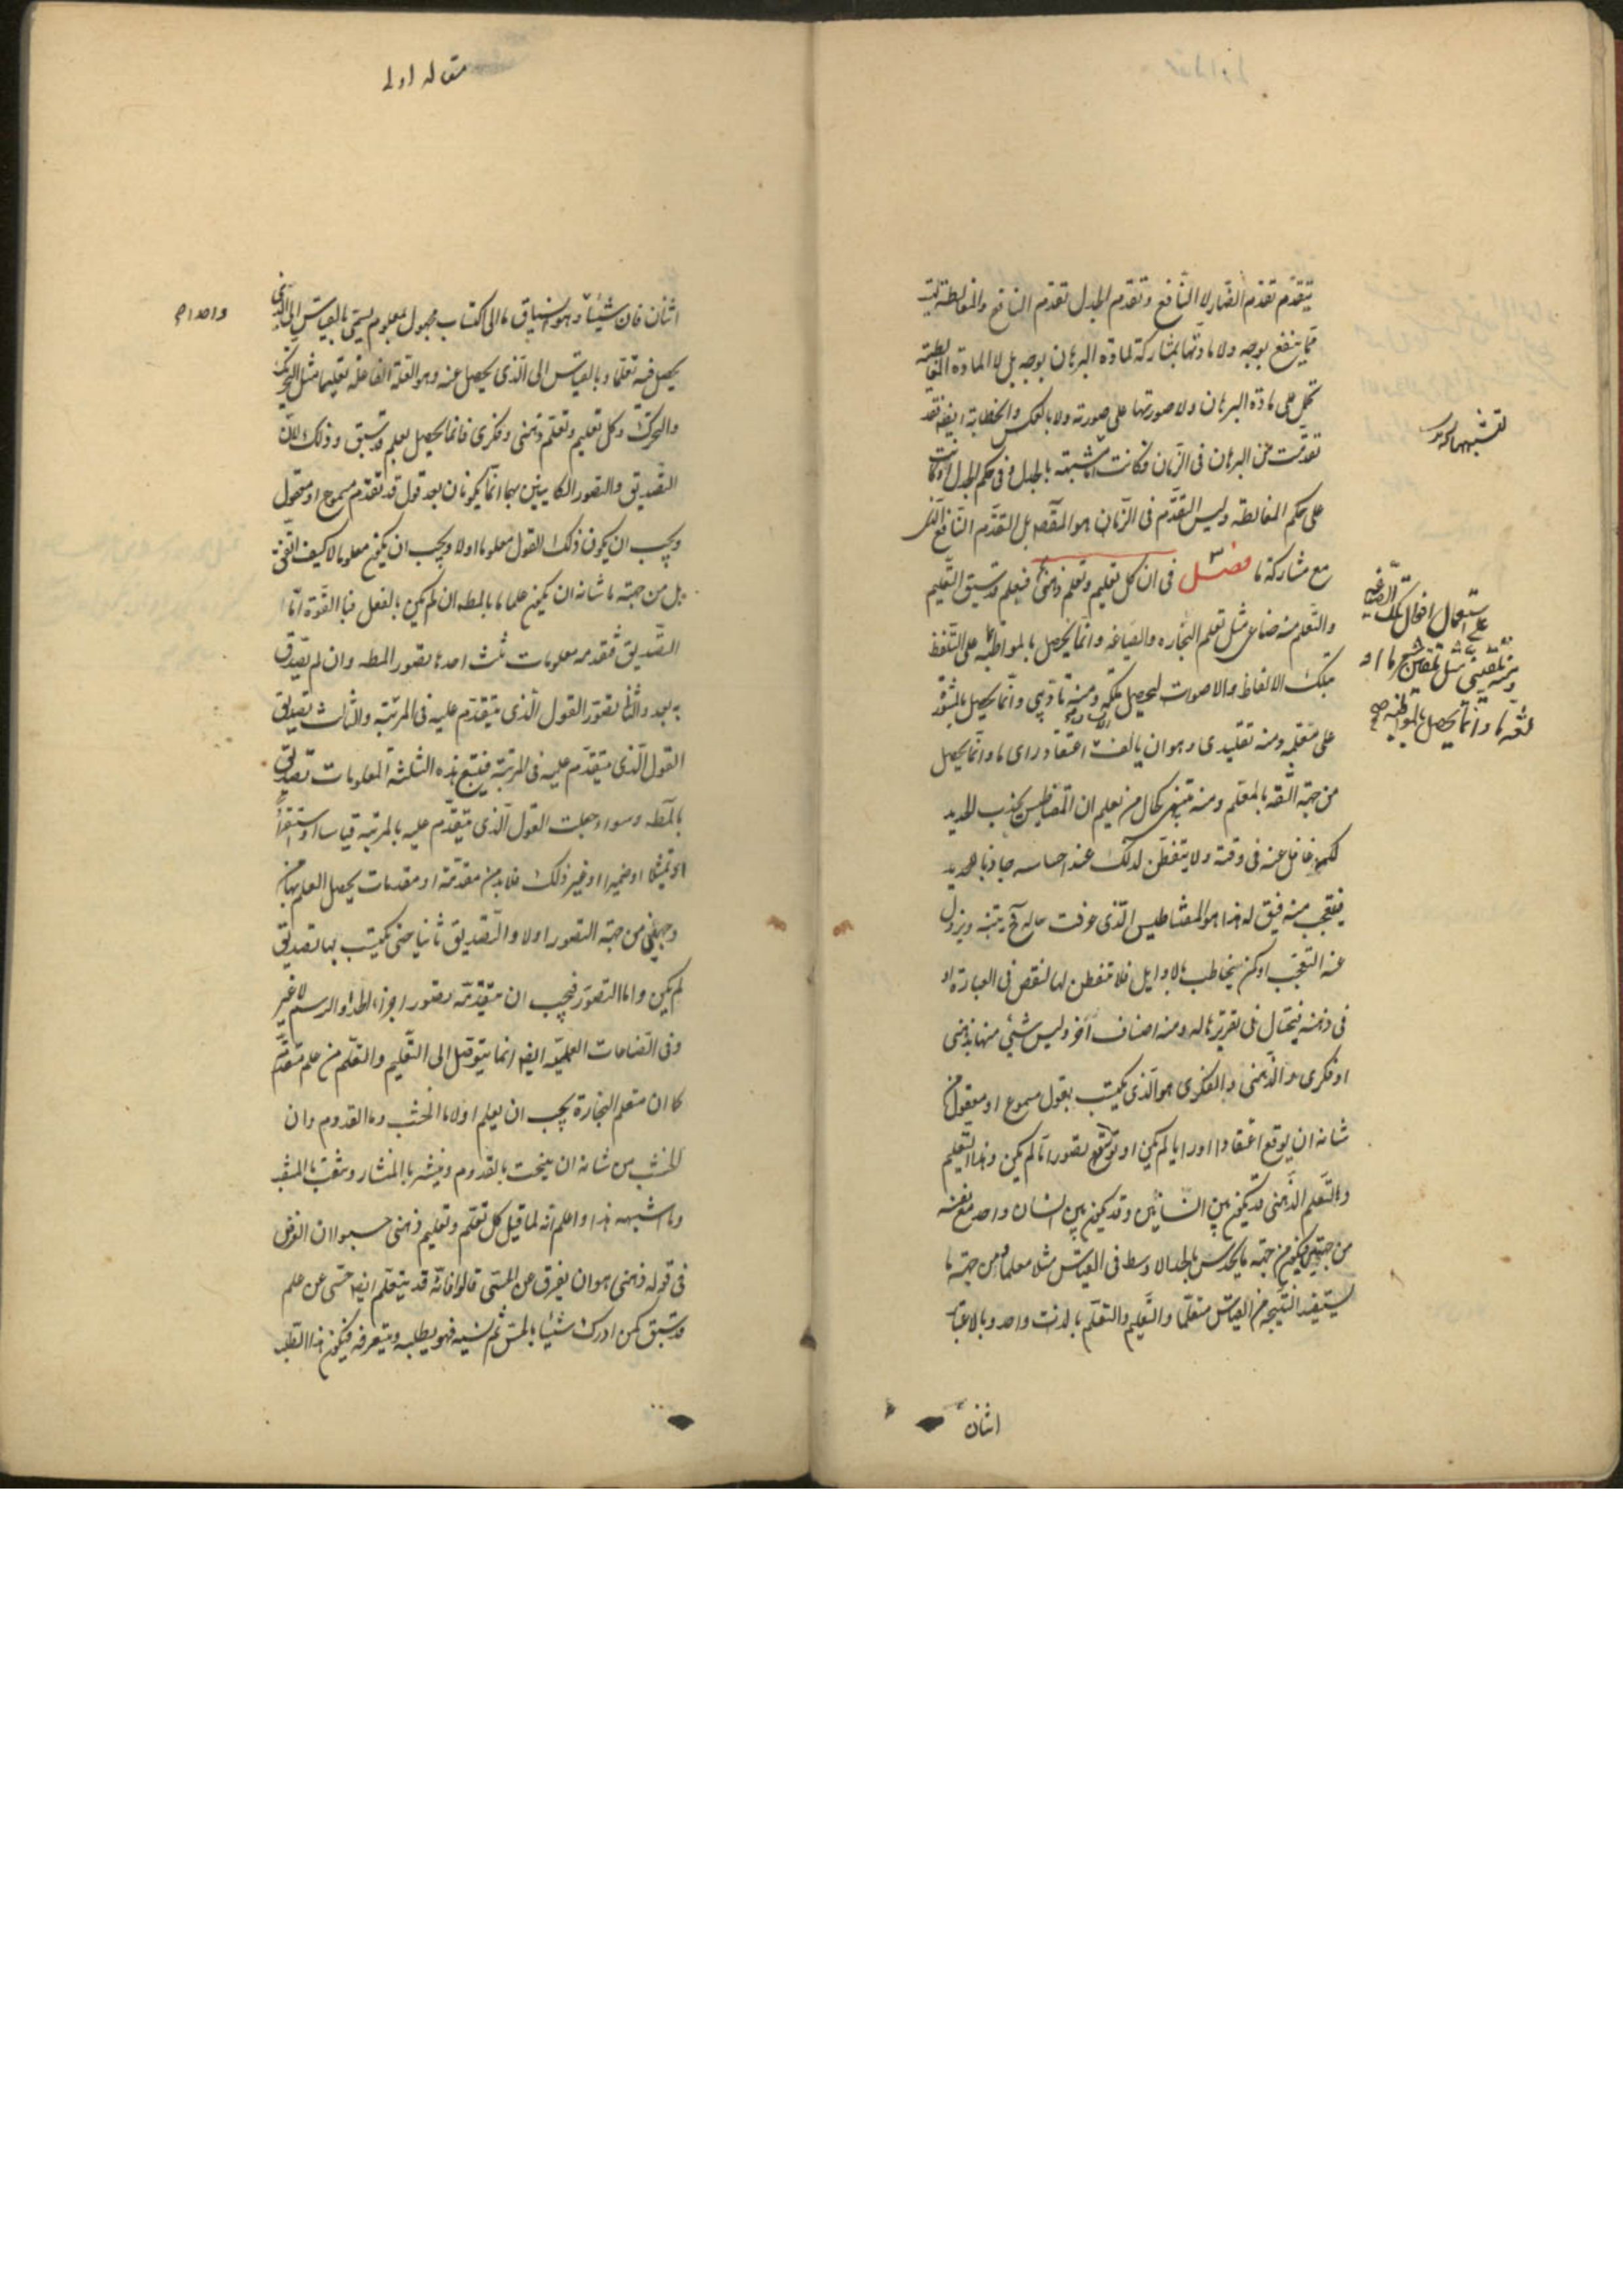 يتقدم تقدم الضار لا النافع وتقدم الجدل تقدم النافع والمغالطة ليست
مما ينفع بوجه ولا مادتها بمشاركة لمادة البرهان بوجه بل لا المادة المغالطية
تحمل على مادة البرهان ولا صورتها على صورته ولا بالعكس والخطابة ايضا فقد
تقدمت على البرهان في الزمان فكانت اما مشبهة بالجدل وفي حكم الجدل او كانت
على حكم المغالطة وليس التقدم في الزمان هو المقصد بل التقدم النافع الذى
مع مشاركة ما فصل ٣ في ان كل تعليم وتعلم ذهنى فبعلم قد سبق التعليم
والتعلم منه صناعى مثل تعلم النجارة والصياغة وانما يحصل بالمواظبة على التلفظ
بتلك الالفاظ والاصوات ليحصل ملكة ومنه تأديبى وانما يحصل بالمشورة
على متعلمه ومنه تقليدى وهو ان يألف الانسان اعتقاد راى ما وانما يحصل
من جهة الثقة بالمعلم ومنه تنبيهى كحال من يعلم ان المغناطيس يجذب الحديد
لكنه غافل عنه في وقته ولا يتفطن لذلك عند احساسه جاذبا لحديد
فيتعجب منه فيق له هذا هو المغناطيس الذى عرفت حاله فح يتنبه ويزول
عنه التعجب او كمن يخاطب بالاوايل فلا يتفطن لها لنقص في العبارة او
في ذهنه فيحتال في تقريرها له ومنه اصناف اخر وليس شئ منها بذهنى
او فكرى والذهنى والفكرى هو الذى يكتسب بقول مسموع او معقول من
شانه ان يوقع اعتقادا او رايا لم يكن او يوقع تصورا ما لم يكن وهذا التعليم
والتعلم الذهنى قد يكون بين انسانين وقد يكون بين انسان واحد مع نفسه
من جهتين فيكون من جهة ما يحدس بالحد الاوسط في القياس مثلا معلما ومن جهة ما
يستفيد النتيجة من القياس متعلما والتعليم والتعلم بالذات واحد وبالاعتبار
اثنان
تشبيهها
استعمال افعال تلك الصناعة
ومنه تلقينى مثل تلقين شعر ما او
لغة ما وانما يحصل بالمواظبة صح
مقاله اولى
اثنان فان شيئا وهو انسياق ما الى اكتساب مجهول بمعلوم يسمى بالقياس الى الذى
يحصل فيه تعلما وبالقياس الى الذى يحصل عنه وهو العلة الفاعلة تعليما مثل التحريك
والتحرك وكل تعليم وتعلم ذهنى وفكرى فانما يحصل بعلم قد سبق وذلك لان
التصديق والتصور الكاينين بهما انما يكونان بعد قول قد تقدم مسموع او معقول
ويجب ان يكون ذلك القول معلوما اولا ويجب ان يكون معلوما لا كيف اتفق
بل من جهة ما شانه ان يكون علما ما بالمطه ان لم يكن بالفعل فبالقوة اما
التصديق فيتقدمه معلومات ثلث احدها تصور المطه وان لم يصدق
به بعد والثانى تصور القول الذى يتقدم عليه في المرتبة والثالث تصديق
القول الذى يتقدم عليه في المرتبة فيتبع هذه الثلثة المعلومات تصديق
بالمطه وسواء جعلت القول الذى يتقدم عليه بالمرتبة قياسا او استقراء
او تمثيلا او ضميرا او غير ذلك فلا بد من مقدمة او مقدمات يحصل العلم بها من
وجهين من جهة التصور اولا والتصديق ثانيا حتى يكتسب بها تصديق
لم يكن واما التصور فيجب ان يتقدمه تصور اجزاء الحد او الرسم لا غير
وفي الصناعات العملية ايضا انما يتوصل الى التعليم والتعلم من علم متقدم
كما ان متعلم النجارة يجب ان يعلم اولا ما الخشب وما القدوم وان
الخشب من شانه ان ينحت بالقدوم وينشر بالمنشار ويثقب بالمثقب
وما اشبهه هذا واعلم انه لما قيل كل تعلم وتعليم ذهنى حسبوا ان الغرض
في قوله ذهنى هو ان يفرق عن الحسى قالوا فانه قد يتعلم ايضا حسى عن علم
قد سبق كمن ادرك شيئا بالحس ثم نسيه فهو يطلبه ويتعرفه فيكون هذا الطلب